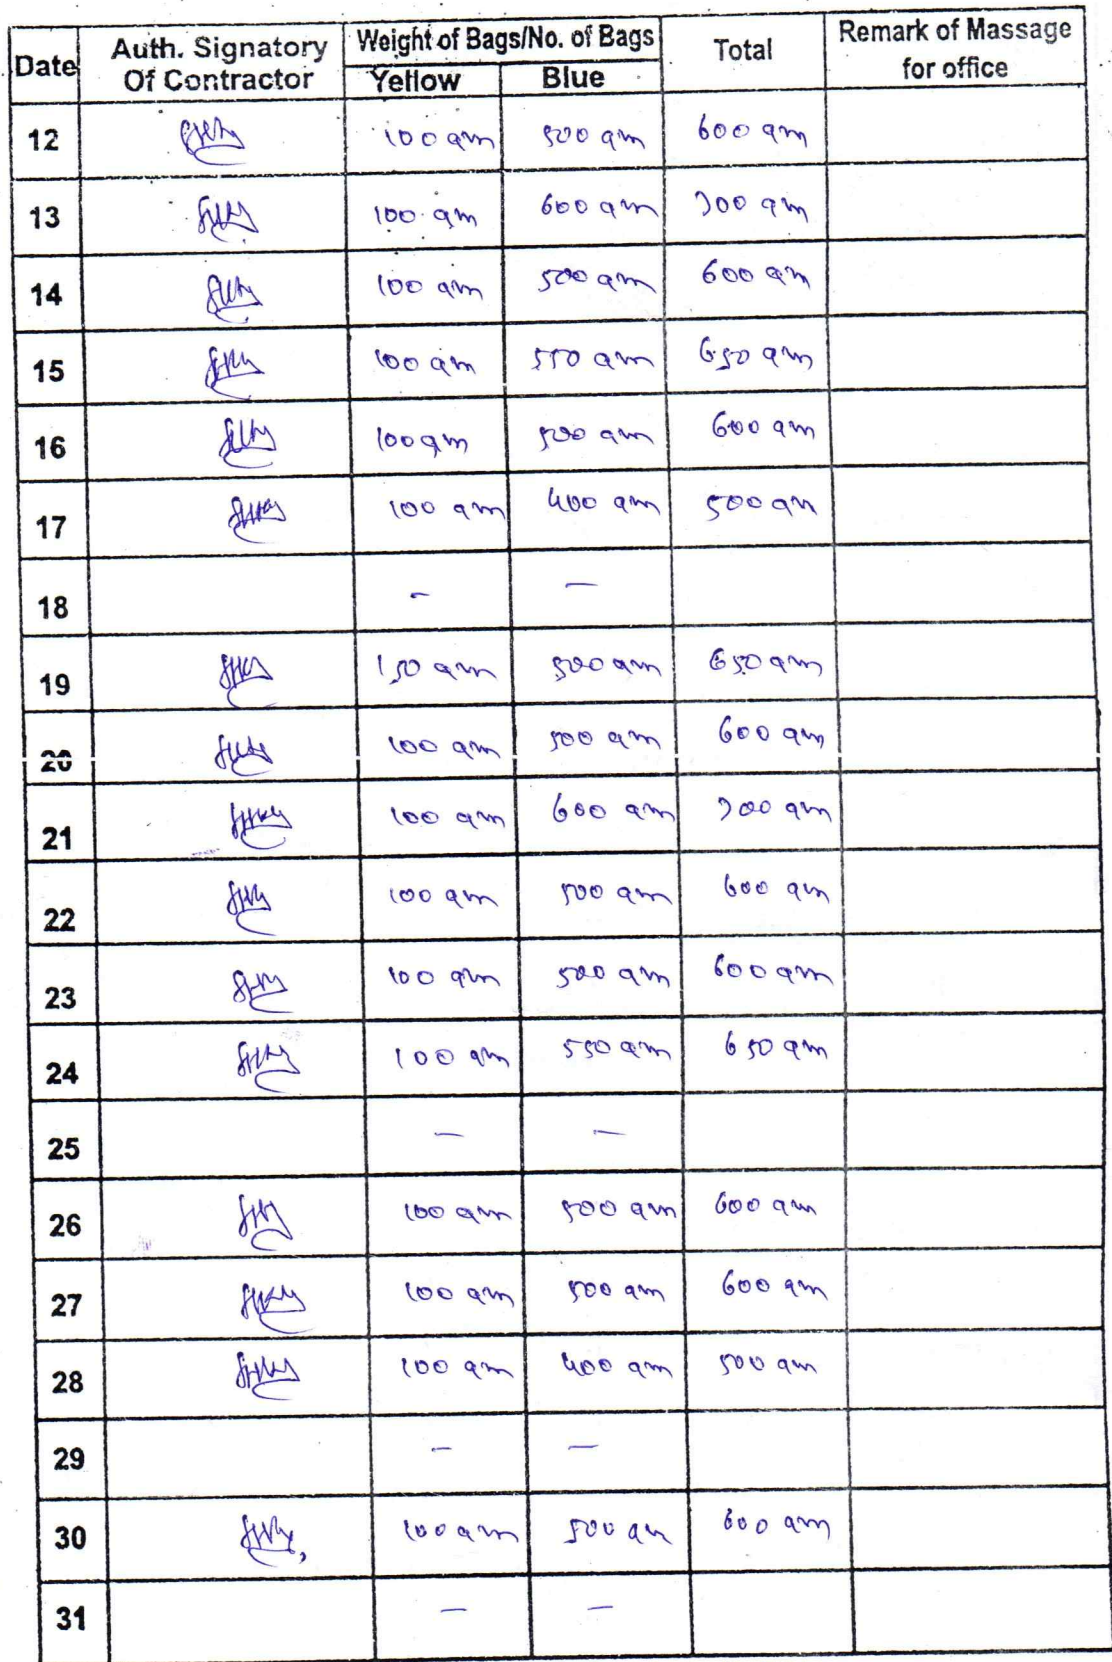 Date Auth. Signatory Of Contractor Weight of Bags/No. of Bags Total Remark of Massage for office
Yellow Blue
12 100 gm 500 gm 600 gm
13 100 gm 600 gm 700 gm
14 100 gm 500 gm 600 gm
15 100 gm 550 gm 650 gm
16 100 gm 500 gm 600 gm
17 100 gm 400 gm 500 gm
18 - -
19 150 gm 500 gm 650 gm
20 100 gm 500 gm 600 gm
21 100 gm 600 gm 700 gm
22 100 gm 500 gm 600 gm
23 100 gm 500 gm 600 gm
24 100 gm 550 gm 650 gm
25 - -
26 100 gm 500 gm 600 gm
27 100 gm 500 gm 600 gm
28 100 gm 400 gm 500 gm
29 - -
30 100 gm 500 gm 600 gm
31 - -